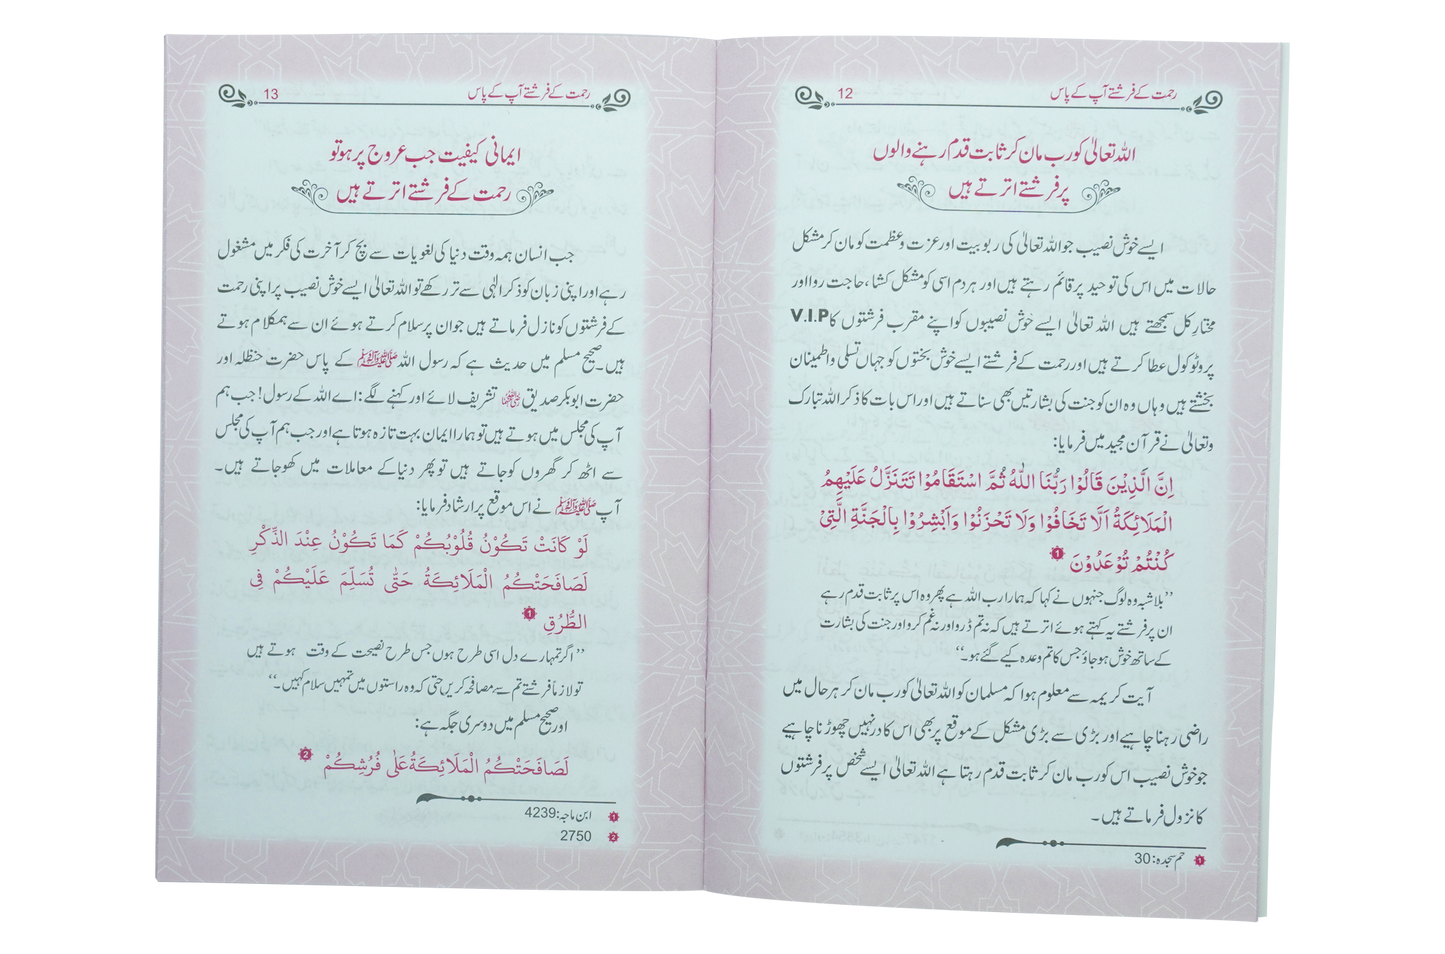 رحمت کے فرشتے آپ کے پاس 12
اللہ تعالیٰ کو رب مان کر ثابت قدم رہنے والوں
پر فرشتے اترتے ہیں
ایسے خوش نصیب جو اللہ تعالیٰ کی ربوبیت اور عزت وعظمت کو مان کر مشکل
حالات میں اس کی توحید پر قائم رہتے ہیں اور ہر دم اسی کو مشکل کشا، حاجت روا اور
مختارِ کل سمجھتے ہیں اللہ تعالیٰ ایسے خوش نصیبوں کو اپنے مقرب فرشتوں کا V.I.P
پروٹوکول عطا کرتے ہیں اور رحمت کے فرشتے ایسے خوش بختوں کو جہاں تسلی واطمینان
بخشتے ہیں وہاں وہ ان کو جنت کی بشارتیں بھی سناتے ہیں اور اس بات کا ذکر اللہ تبارک
وتعالیٰ نے قرآن مجید میں فرمایا:
اِنَّ الَّذِیْنَ قَالُوْا رَبُّنَا اللّٰهُ ثُمَّ اسْتَقَامُوْا تَتَنَزَّلُ عَلَیْهِمُ
الْمَلَائِكَةُ اَلَّا تَخَافُوْا وَلَا تَحْزَنُوْا وَاَبْشِرُوْا بِالْجَنَّةِ الَّتِیْ
كُنْتُمْ تُوْعَدُوْنَ 1
”بلاشبہ وہ لوگ جنہوں نے کہا کہ ہمارا رب اللہ ہے پھر وہ اس پر ثابت قدم رہے
ان پر فرشتے یہ کہتے ہوئے اترتے ہیں کہ نہ تم ڈرو اور نہ غم کرو اور جنت کی بشارت
کے ساتھ خوش ہو جاؤ جس کا تم وعدہ کیے گئے ہو۔“
آیت کریمہ سے معلوم ہوا کہ مسلمان کو اللہ تعالیٰ کو رب مان کر ہر حال میں
راضی رہنا چاہیے اور بڑی سے بڑی مشکل کے موقع پر بھی اس کا در نہیں چھوڑنا چاہیے
جو خوش نصیب اس کو رب مان کر ثابت قدم رہتا ہے اللہ تعالیٰ ایسے شخص پر فرشتوں
کا نزول فرماتے ہیں۔
1 حم سجدہ: 30
رحمت کے فرشتے آپ کے پاس 13
ایمانی کیفیت جب عروج پر ہو تو
رحمت کے فرشتے اترتے ہیں
جب انسان ہمہ وقت دنیا کی لغویات سے بچ کر آخرت کی فکر میں مشغول
رہے اور اپنی زبان کو ذکر الٰہی سے تر رکھے تو اللہ تعالیٰ ایسے خوش نصیب پر اپنی رحمت
کے فرشتوں کو نازل فرماتے ہیں جو ان پر سلام کرتے ہوئے ان سے ہمکلام ہوتے
ہیں۔ صحیح مسلم میں حدیث ہے کہ رسول اللہ ﷺ کے پاس حضرت حنظلہ اور
حضرت ابوبکر صدیق رضی اللہ عنہما تشریف لائے اور کہنے لگے: اے اللہ کے رسول! جب ہم
آپ کی مجلس میں ہوتے ہیں تو ہمارا ایمان بہت تازہ ہوتا ہے اور جب ہم آپ کی مجلس
سے اٹھ کر گھروں کو جاتے ہیں تو پھر دنیا کے معاملات میں کھو جاتے ہیں۔
آپ ﷺ نے اس موقع پر ارشاد فرمایا:
لَوْ كَانَتْ تَكُوْنُ قُلُوْبُكُمْ كَمَا تَكُوْنُ عِنْدَ الذِّكْرِ
لَصَافَحَتْكُمُ الْمَلَائِكَةُ حَتّٰى تُسَلِّمَ عَلَيْكُمْ فِي
الطُّرُقِ 1
”اگر تمہارے دل اسی طرح ہوں جس طرح نصیحت کے وقت ہوتے ہیں
تو لازماً فرشتے تم سے مصافحہ کریں حتیٰ کہ وہ راستوں میں تمہیں سلام کہیں۔“
اور صحیح مسلم میں دوسری جگہ ہے:
لَصَافَحَتْكُمُ الْمَلَائِكَةُ عَلٰى فُرُشِكُمْ 2
1 ابن ماجہ: 4239
2 2750